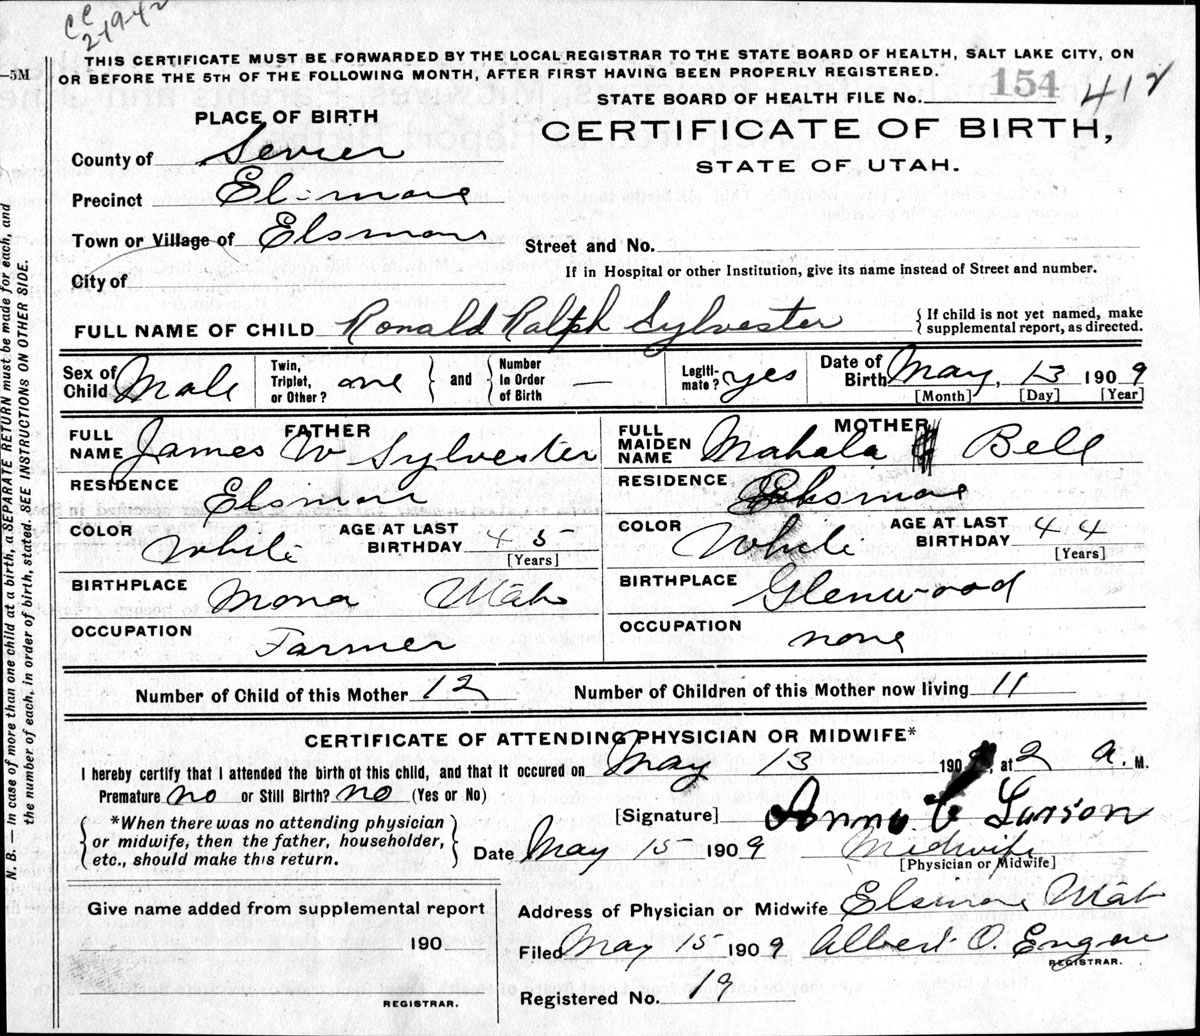 CC
2-19-42
THIS CERTIFICATE MUST BE FORWARDED BY THE LOCAL REGISTRAR TO THE STATE BOARD OF HEALTH, SALT LAKE CITY, ON
—5M OR BEFORE THE 5TH OF THE FOLLOWING MONTH, AFTER FIRST HAVING BEEN PROPERLY REGISTERED.
STATE BOARD OF HEALTH FILE No. 154 412
PLACE OF BIRTH
CERTIFICATE OF BIRTH,
STATE OF UTAH.
County of Sevier
Precinct Elsinore
Town or Village of Elsinore
Street and No.
If in Hospital or other Institution, give its name instead of Street and number.
City of
FULL NAME OF CHILD Ronald Ralph Sylvester { If child is not yet named, make supplemental report, as directed.
Sex of Child Male Twin, Triplet, or Other? one } and { Number In Order of Birth — Legitimate? yes Date of Birth May, 13 1909
[Month] [Day] [Year]
FATHER
FULL NAME James W Sylvester
RESIDENCE Elsinore
COLOR White AGE AT LAST BIRTHDAY 45 [Years]
BIRTHPLACE Mona Utah
OCCUPATION Farmer
MOTHER
FULL MAIDEN NAME Mahala Bell
RESIDENCE Elsinore
COLOR White AGE AT LAST BIRTHDAY 44 [Years]
BIRTHPLACE Glenwood
OCCUPATION none
Number of Child of this Mother 12 Number of Children of this Mother now living 11
CERTIFICATE OF ATTENDING PHYSICIAN OR MIDWIFE*
I hereby certify that I attended the birth of this child, and that it occured on May 13 190 , at 2 a. M.
Premature no or Still Birth? no (Yes or No)
{ *When there was no attending physician or midwife, then the father, householder, etc., should make this return. }
[Signature] Anna C Larson
Date May 15 1909 Midwife
[Physician or Midwife]
Give name added from supplemental report
190
REGISTRAR.
Address of Physician or Midwife Elsinore Utah
Filed May 15 1909 Albert O. Engar
REGISTRAR.
Registered No. 19
N. B.—In case of more than one child at a birth, a SEPARATE RETURN must be made for each, and
the number of each, in order of birth, stated. SEE INSTRUCTIONS ON OTHER SIDE.